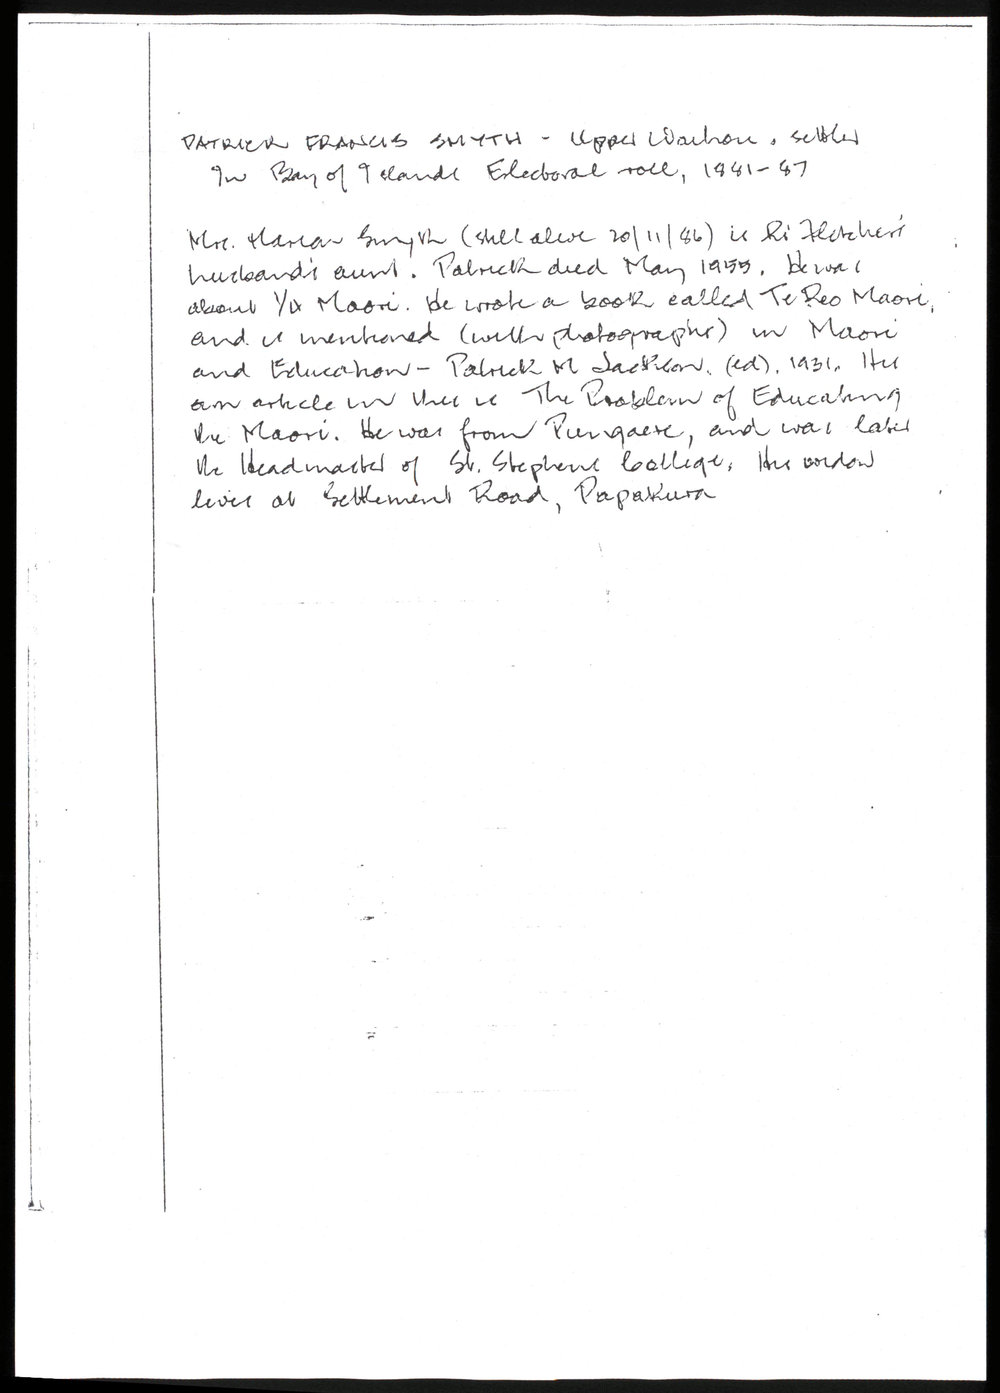 PATRICK FRANCIS SMYTH - Upper Waihou. settler
In Bay of Islands Electoral roll, 1881-87
Mrs. Smyth (still alive 20/11/86) is Ri Fletcher's
husband's aunt. Patrick died May 1955. He was
about 1/4 Maori. He wrote a book called Te Reo Maori,
and is mentioned (with photographs) in Maori
and Education - Patrick M Jackson. (ed). 1931. His
own article in this is The Problem of Educating
the Maori. He was from Pungaere, and was later
the Headmaster of St. Stephens College. His widow
lives at Settlement Road, Papakura